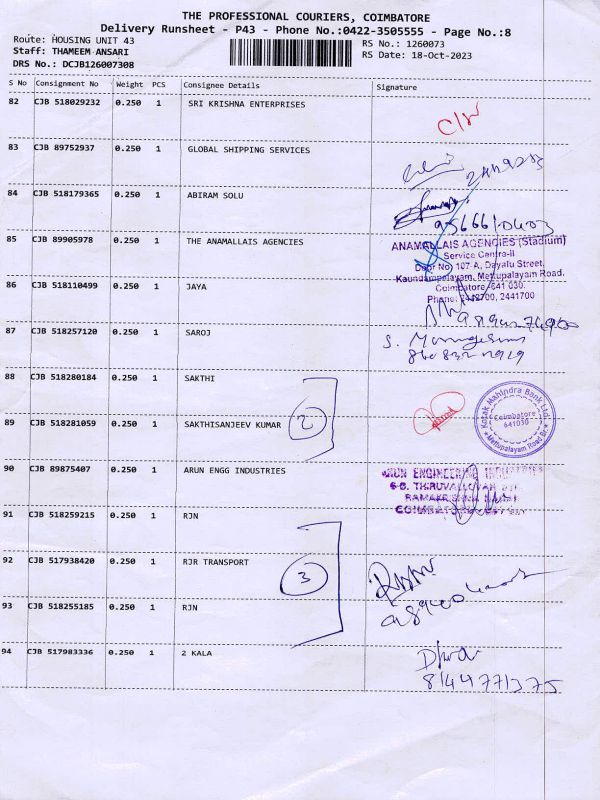 THE PROFESSIONAL COURIERS, COIMBATORE
Delivery Runsheet - P43 - Phone No.:0422-3505555 - Page No.:8
Route: HOUSING UNIT 43
RS No.: 1260073
Staff: THAMEEM ANSARI
RS Date: 18-Oct-2023
DRS No.: DCJB126007308
S No Consignment No Weight PCS Consignee Details Signature
82 CJB 518029232 0.250 1 SRI KRISHNA ENTERPRISES
83 CJB 89752937 0.250 1 GLOBAL SHIPPING SERVICES
84 CJB 518179365 0.250 1 ABIRAM SOLU
85 CJB 89905978 0.250 1 THE ANAMALLAIS AGENCIES
ANAMALLAIS AGENCIES (Stadium)
Service Centre-II
Door No 107-A, Dayalu Street,
Kaundampalayam, Mettupalayam Road,
Coimbatore -641 030.
Phone: 2442700, 2441700
86 CJB 518110499 0.250 1 JAYA
87 CJB 518257120 0.250 1 SAROJ
88 CJB 518280184 0.250 1 SAKTHI
89 CJB 518281059 0.250 1 SAKTHISANJEEV KUMAR
2
Kotak Mahindra Bank Ltd.
Coimbatore
641030
Mettupalayam Road Br.
90 CJB 89875407 0.250 1 ARUN ENGG INDUSTRIES
ARUN ENGINEERING INDUSTRIES
91 CJB 518259215 0.250 1 RJN
92 CJB 517938420 0.250 1 RJR TRANSPORT
3
93 CJB 518255185 0.250 1 RJN
94 CJB 517983336 0.250 1 2 KALA
8144771375